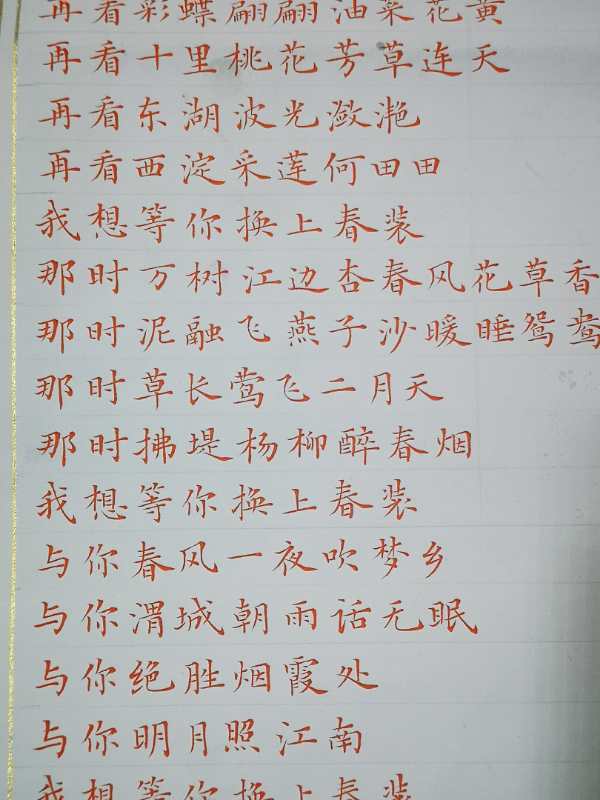 再看彩蝶翩翩油菜花黄
再看十里桃花芳草连天
再看东湖波光潋滟
再看西淀采莲何田田
我想等你换上春装
那时万树江边杏春风花草香
那时泥融飞燕子沙暖睡鸳鸯
那时草长莺飞二月天
那时拂堤杨柳醉春烟
我想等你换上春装
与你春风一夜吹梦乡
与你渭城朝雨话无眠
与你绝胜烟霞处
与你明月照江南
我想等你换上春装